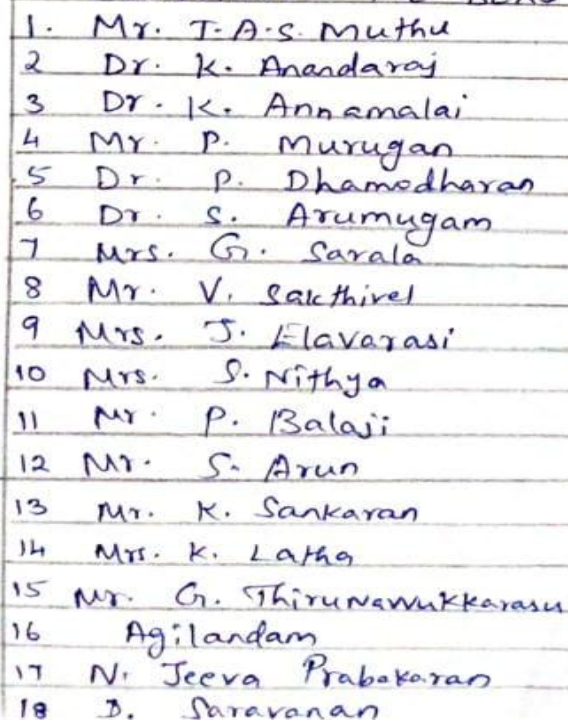 1. Mr. T.A.S. Muthu
2 Dr. K. Anandaraj
3 Dr. K. Annamalai
4 Mr. P. Murugan
5 Dr. P. Dhamodharan
6 Dr. S. Arumugam
7 Mrs. G. Sarala
8 Mr. V. Sakthivel
9 Mrs. J. Elavarasi
10 Mrs. S. Nithya
11 Mr. P. Balaji
12 Mr. S. Arun
13 Mr. K. Sankaran
14 Mrs. K. Latha
15 Mr. G. Thirunavvukkarasu
16 Agilandam
17 N. Jeeva Prabakaran
18 D. Saravanan